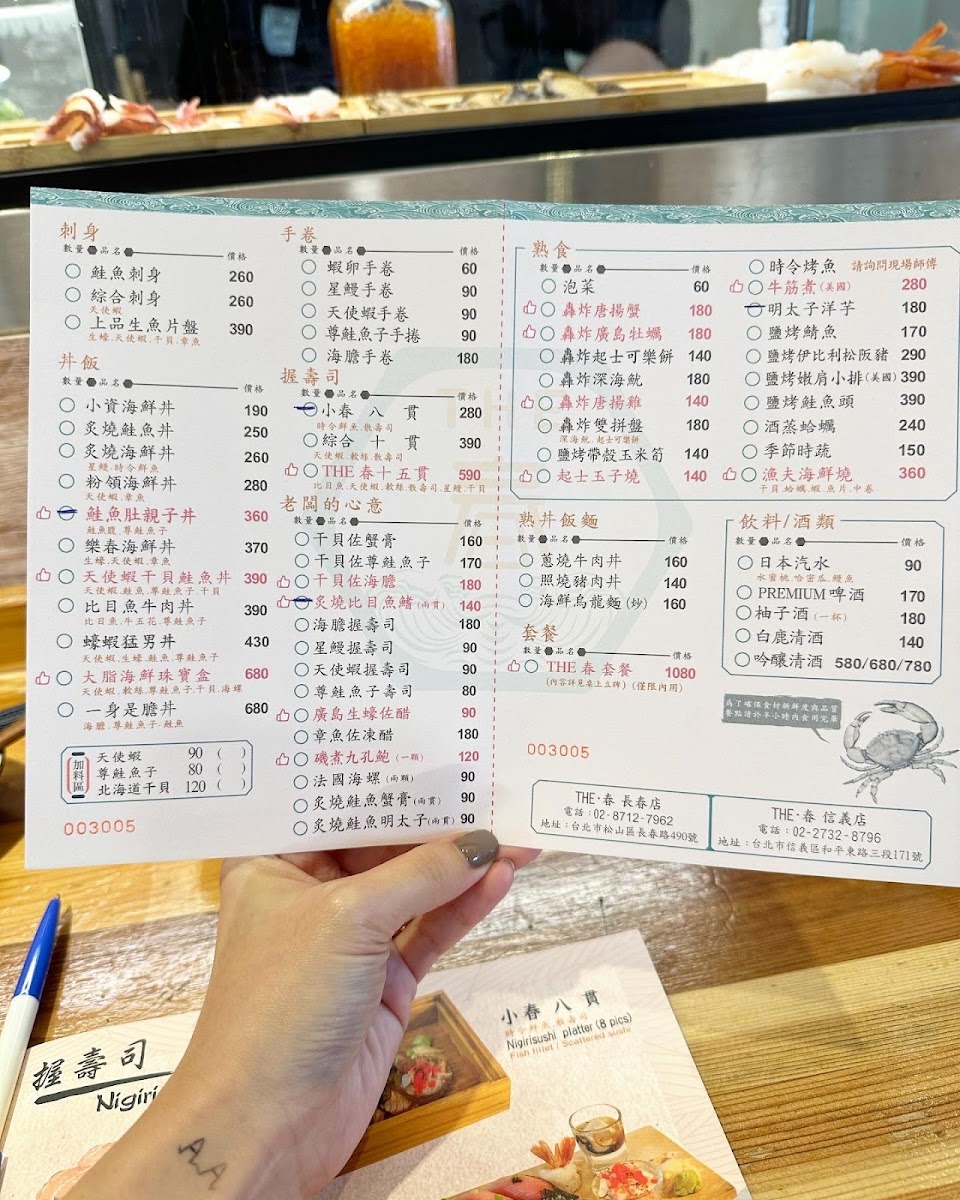 刺身
數量 品名 價格
鮭魚刺身 260
綜合刺身 260
天使蝦
上品生魚片盤 390
生蠔.天使蝦.干貝.章魚
丼飯
數量 品名 價格
小資海鮮丼 190
炙燒鮭魚丼 250
炙燒海鮮丼 260
星鰻.時令鮮魚
粉領海鮮丼 280
天使蝦.章魚
鮭魚肚親子丼 360
鮭魚腹.尊鮭魚子
樂春海鮮丼 370
生蠔.天使蝦.章魚
天使蝦干貝鮭魚丼 390
天使蝦.鮭魚.尊鮭魚子.干貝
比目魚牛肉丼 390
比目魚.牛五花.尊鮭魚子
蠔蝦猛男丼 430
天使蝦.生蠔.鮭魚.尊鮭魚子
大脂海鮮珠寶盒 680
天使蝦.軟絲.尊鮭魚子.干貝.海螺
一身是膽丼 680
海膽.尊鮭魚子.鮭魚
加料區
天使蝦 90 ( )
尊鮭魚子 80 ( )
北海道干貝 120 ( )
003005
手卷
數量 品名 價格
蝦卵手卷 60
星鰻手卷 90
天使蝦手卷 90
尊鮭魚子手捲 90
海膽手卷 180
握壽司
數量 品名 價格
小春 八 貫 280
時令鮮魚.散壽司
綜合 十 貫 390
天使蝦.軟絲.散壽司
THE 春十五貫 590
比目魚.天使蝦.軟絲.散壽司.星鰻.干貝
老闆的心意
數量 品名 價格
干貝佐蟹膏 160
干貝佐尊鮭魚子 170
干貝佐海膽 180
炙燒比目魚鰭(兩貫) 140
海膽握壽司 180
星鰻握壽司 90
天使蝦握壽司 90
尊鮭魚子壽司 80
廣島生蠔佐醋 90
章魚佐凍醋 180
磯煮九孔鮑(一顆) 120
法國海螺(兩顆) 90
炙燒鮭魚蟹膏(兩貫) 90
炙燒鮭魚明太子(兩貫) 90
熟食
數量 品名 價格
泡菜 60
轟炸唐揚蟹 180
轟炸廣島牡蠣 180
轟炸起士可樂餅 140
轟炸深海魷 180
轟炸唐揚雞 140
轟炸雙拼盤 180
深海魷.起士可樂餅
鹽烤帶殼玉米筍 140
起士玉子燒 140
時令烤魚 請詢問現場師傅
牛筋煮(美國) 280
明太子洋芋 180
鹽烤鯖魚 170
鹽烤伊比利松阪豬 290
鹽烤嫩肩小排(美國) 390
鹽烤鮭魚頭 390
酒蒸蛤蠣 240
季節時蔬 150
漁夫海鮮燒 360
干貝.蛤蠣.蝦.魚片.中卷
熟丼飯麵
數量 品名 價格
蔥燒牛肉丼 160
照燒豬肉丼 140
海鮮烏龍麵(炒) 160
套餐
數量 品名 價格
THE 春套餐 1080
(內容詳見桌上立牌) (僅限內用)
飲料/酒類
數量 品名 價格
日本汽水 90
水蜜桃.哈密瓜.鰻魚
PREMIUM啤酒 170
柚子酒(一杯) 180
白鹿清酒 140
吟釀清酒 580/680/780
為了確保食材新鮮度與品質
餐點請於半小時內食用完畢
003005
THE·春 長春店
電話:02-8712-7962
地址:台北市松山區長春路490號
THE·春 信義店
電話:02-2732-8796
地址:台北市信義區和平東路三段171號
握壽司
Nigiri
小春 八 貫
時令鮮魚.散壽司
Nigirisushi platter (8 pics)
Fish fillet / Scattered sushi